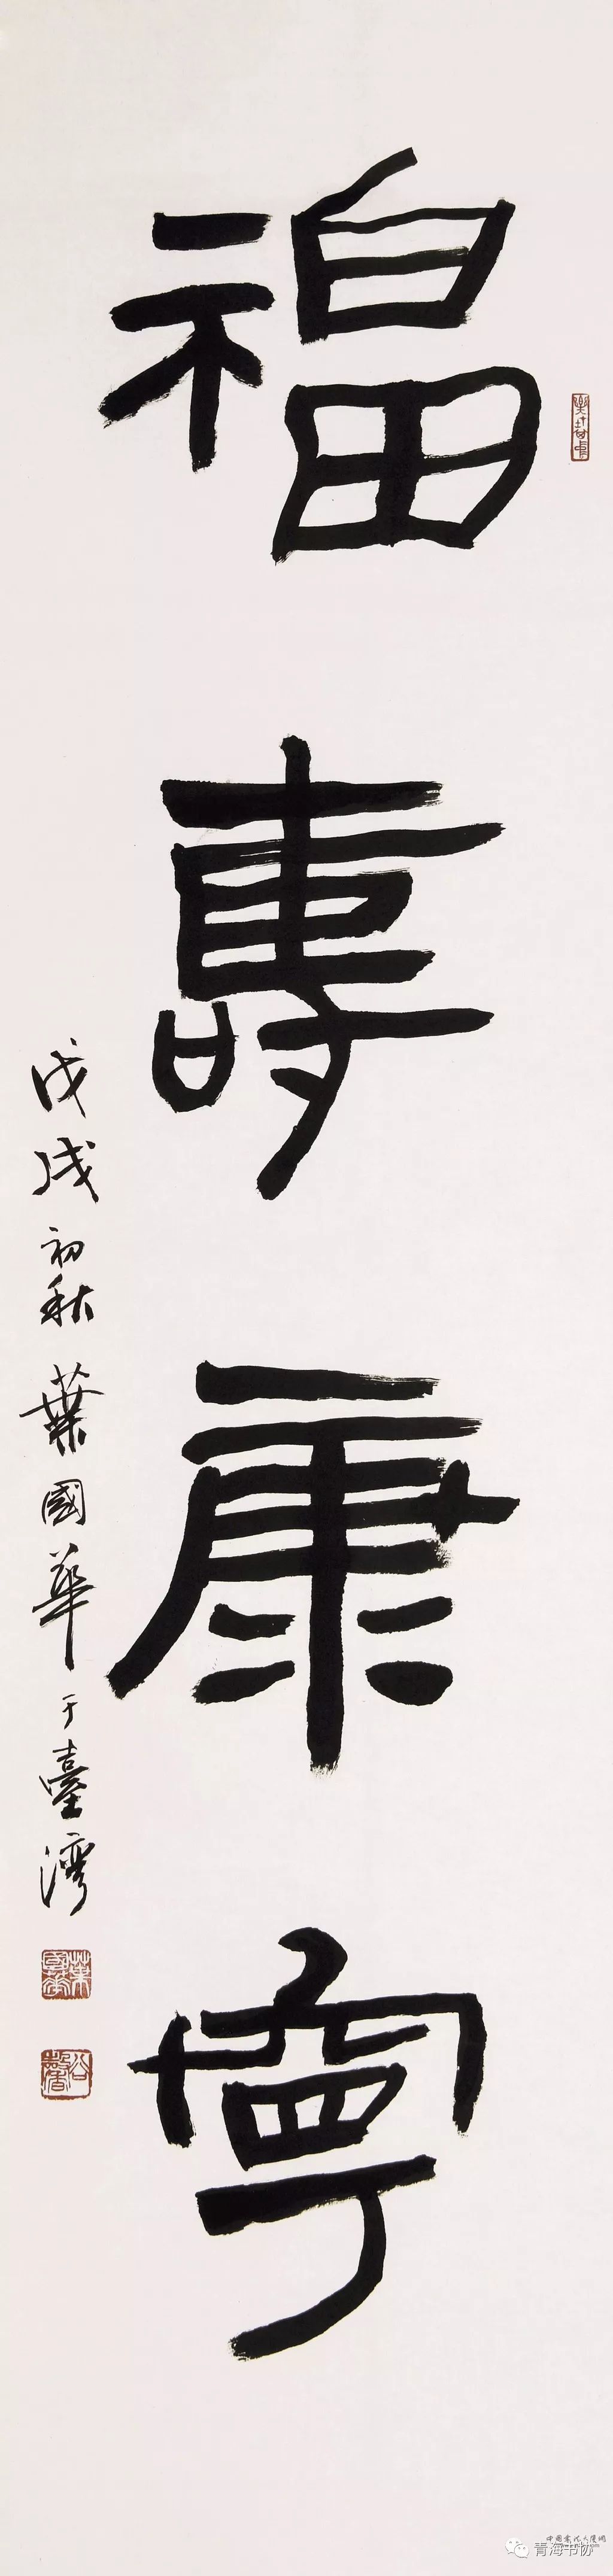 福壽康寧
戊戌初秋葉國華于臺灣
葉國華
青海书协